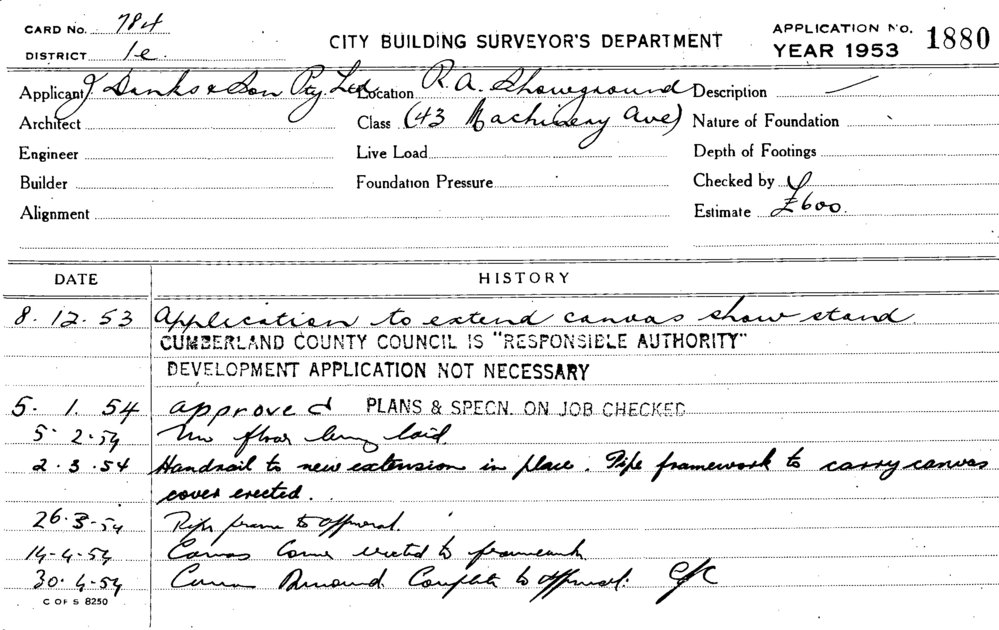 CARD No. 784
DISTRICT 1e
CITY BUILDING SURVEYOR'S DEPARTMENT
APPLICATION No. 1880
YEAR 1953
Applicant J Danks & Son Pty. Ltd. Location R.A. Showground Description
Architect Class (43 Machinery Ave) Nature of Foundation
Engineer Live Load Depth of Footings
Builder Foundation Pressure Checked by
Alignment Estimate £600.
DATE HISTORY
8. 12. 53 Application to extend canvas show stand.
CUMBERLAND COUNTY COUNCIL IS "RESPONSIBLE AUTHORITY"
DEVELOPMENT APPLICATION NOT NECESSARY
5. 1. 54 approved PLANS & SPECN. ON JOB CHECKED
5. 2. 54 floor being laid
2. 3. 54 Handrail to new extension in place. Pipe framework to carry canvas
cover erected.
26. 3. 54 Pipe frame to approval.
14. 4. 54 Canvas erected to framework
30. 4. 54 Complete to approval.
C OF S 8250